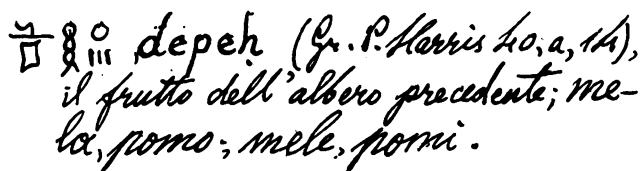 depeh (Gr. P. Harris 40, a, 14),
il frutto dell'albero precedente; me-
la, pomo; mele, pomi.